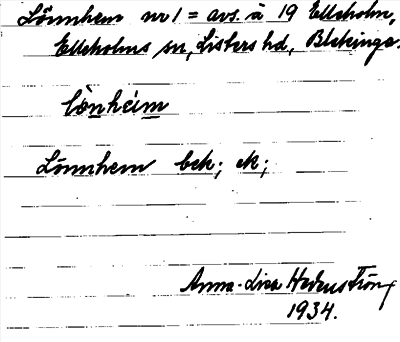 Lönnhem nr 1 = avs. å 19 Elleholm,
Elleholms sn, Listers hd, Blekinge.
lö̀nhéim
Lönnhem bek; ek;
Anna-Lisa Hedenström
1934.